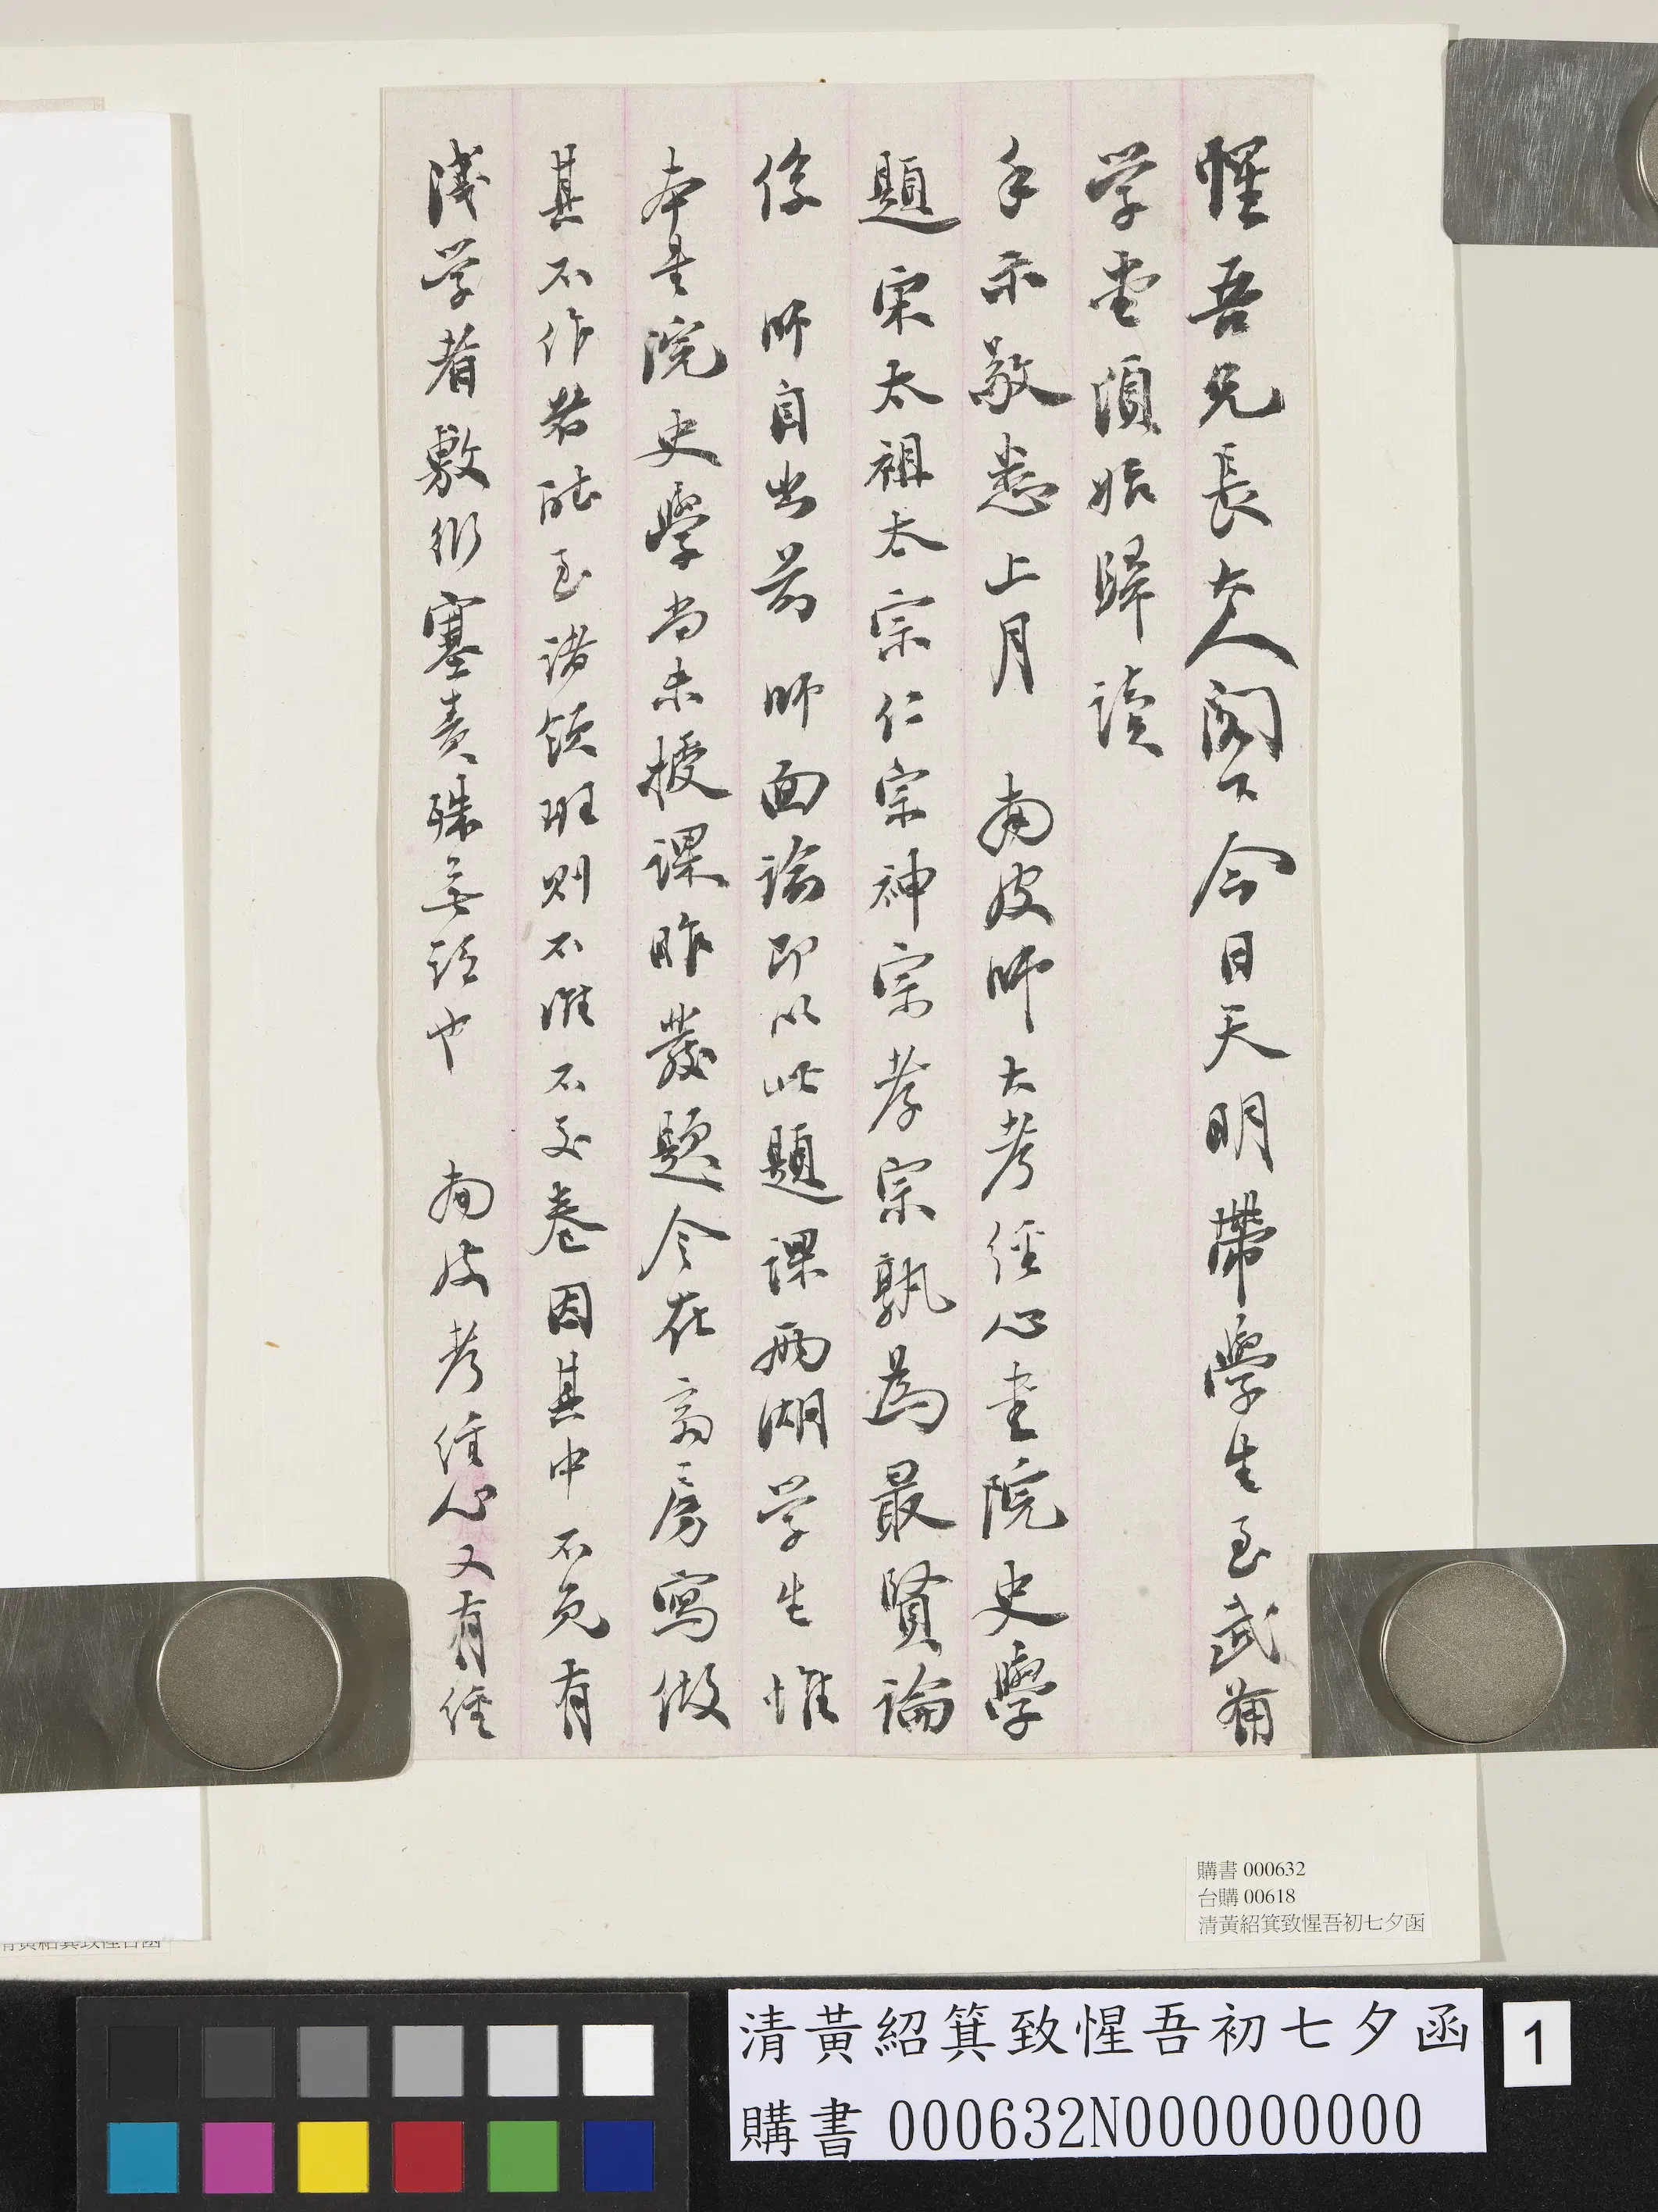 惺吾兄長大人閣下今日天明帶學生至武備
学堂頃始歸讀
手示敬悉上月　南皮師大考經心書院史學
題宋太祖太宗仁宗神宗孝宗孰為最賢論
係　師自出前　師面諭即以此題課兩湖学生惟
本是院史學尚未授課昨發題令在齋房寫做
其不作者能至諸領班則不准不交卷因其中不免有
淺学者敷衍塞責殊無謂也　南皮考經心又有經
購書 000632
台購 00618
清黃紹箕致惺吾初七夕函
清黃紹箕致惺吾初七夕函
購書 000632N000000000
1